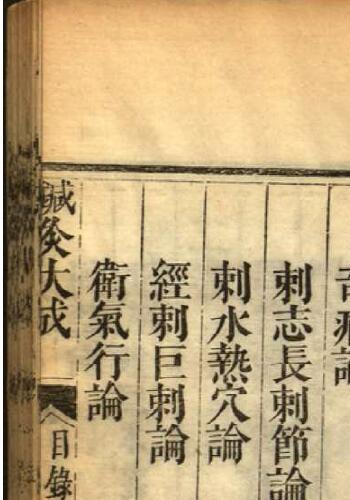 音痱論
刺志長刺節論
刺水熱穴論
經刺巨刺論
衛氣行論
鍼灸大成
目錄